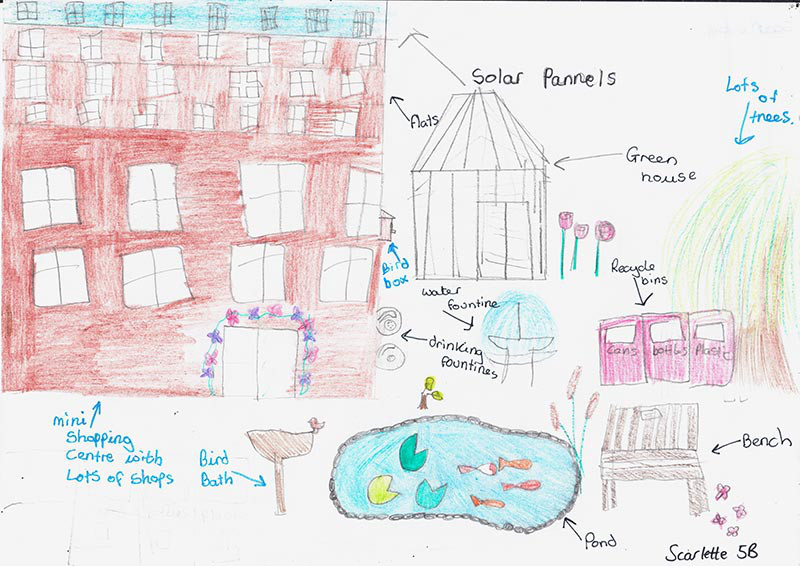 Solar Pannels
flats
Lots
of
trees.
Green
house
Bird
box
Recycle
bins
water
fountine
drinking
fountines
cans
bottles
Plastic
mini
Shopping
Centre with
Lots of Shops
Bird
Bath
Bench
Pond
Scarlette 5B